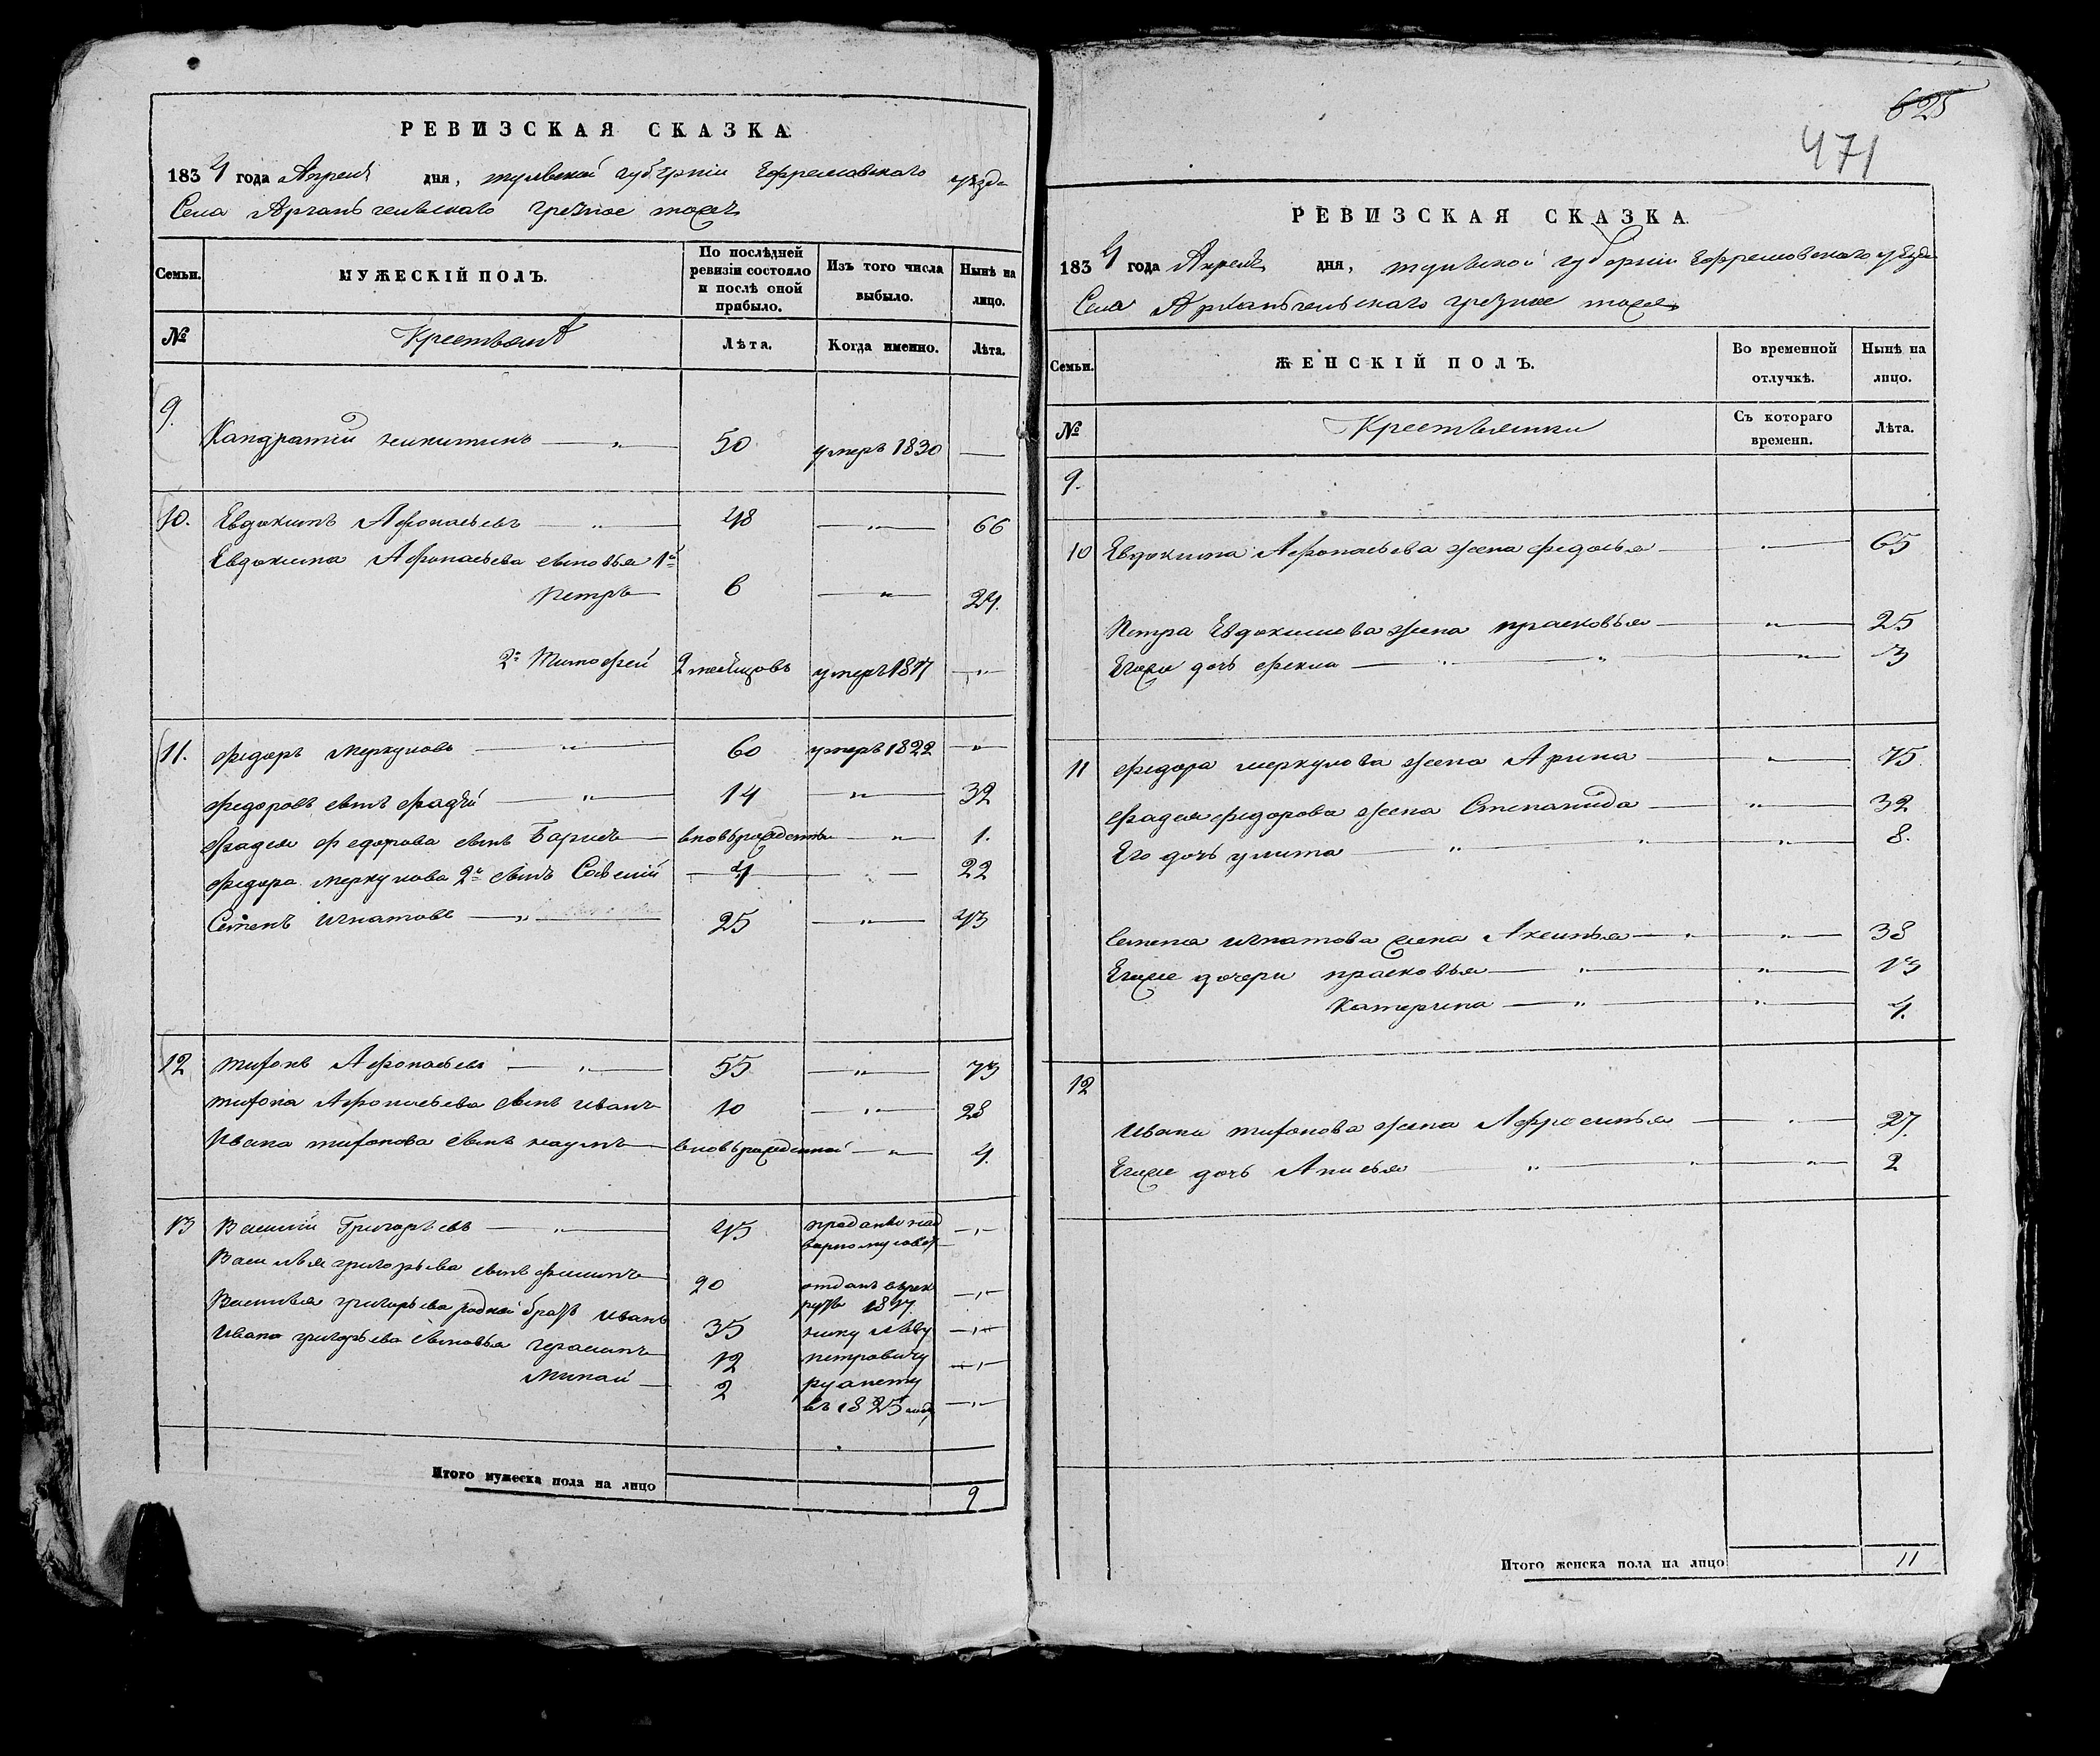 РЕВИЗСКАЯ СКАЗКА
1834 года Апреля дня, тульской губернии Ефремовского уезда
Села Арханьгельскаго грезное тожъ
Семьи. МУЖЕСКІЙ ПОЛЪ. По послѣдней ревизіи состояло и послѣ оной прибыло. Изъ того числа выбыло. Нынѣ на лицо.
№ Крестьяня Лѣта. Когда именно. Лѣта.
9. Капдратий никитинъ — " — 50 умеръ 1830 —
10. Евдокимъ Афонасьевъ — " — 48 — " — 66
Евдокима Афонасьева сыновья 1й
петръ — 6 — " — 24.
2й Тимофей 2 месяцовъ умеръ 1817 — " —
11. федоръ меркуловъ — " — 60 умеръ 1822 — " —
федоровъ сынъ фадѣй — " — 14 — " — 32
фадея федорова сынъ Барисъ — вновьрожденны — " — 1.
федора меркулова 2й сынъ Савелий — 4 — " — 22
Семенъ игнатовъ — " — 25 — " — 43
12 тихонъ Афонасьевъ — " — 55 — " — 73
тихона Афонасьева сынъ иванъ 10 — " — 28
Ивана тихонова сынъ наумъ — вновьрожденной — " — 4.
13 Василий Григорьевъ — " — 45 — " —
Василья григорьева сынъ филипъ 20 отданъ врек — " —
руты 1817.
Василья григорьева родной братъ иванъ 35 — " —
Ивана григорьева сыновья герасимъ 12 петровичу — " —
Минай — 2
въ 1825 году — " —
Итого мужеска пола на лицо 9
625
471
РЕВИЗСКАЯ СКАЗКА
1834 года Апреля дня, тульской губернии Ефремовскаго уезда
Села Арханьгельскаго грезное тоже
Семьи. ЖЕНСКІЙ ПОЛЪ. Во временной отлучкѣ. Нынѣ на лицо.
№ Крестьянки Съ котораго времени. Лѣта.
9.
10 Евдокима Афонасьева жена федосья — " — 65
Петра Евдокимова жена прасковья — " — 25
Егожа дочь фекла — " — " — " — 3
11 федора меркулова жена Арина — " — 75.
фадея федорова жена Степанида — " — 32
Его дочь улита — " — " — " — 8.
Семена игнатова жена Аксинья — " — " — 38
Егоже дочери прасковья — " — " — 13
Катерина — " — " — 4.
12
Ивана тихонова жена Афросинья — " — 27.
Егоже дочь Анисья — " — " — " — 2
Итого женска пола на лицо 11